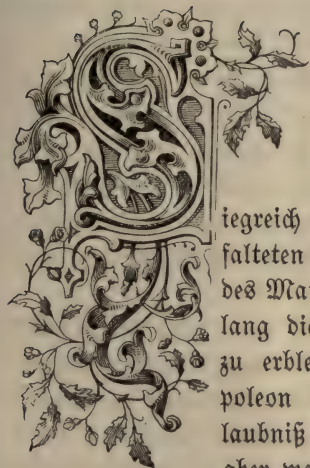 Siegreich
falteten
des Ma
lang die
zu erble
poleon
laubniß
aber